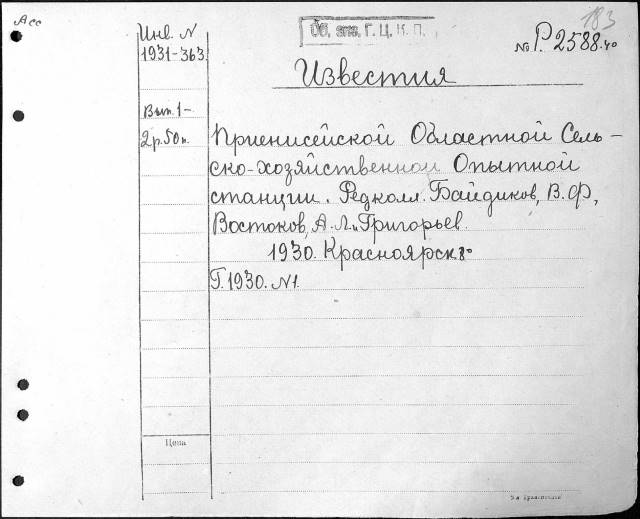 Асс
183
Инв. N
1931-363.
Об. эпз. Г. Ц. К. П.
№ Р. 2588.
Известия
Вып. 1-
2р.50к.
Приенисейской Областной Сель-
ско-хозяйственной Опытной
станции. Редколл. Байдиков, В.Ф,
Востоков, А.Л. и Григорьев.
1930. Красноярск 8°
Г. 1930. N1.
Цена